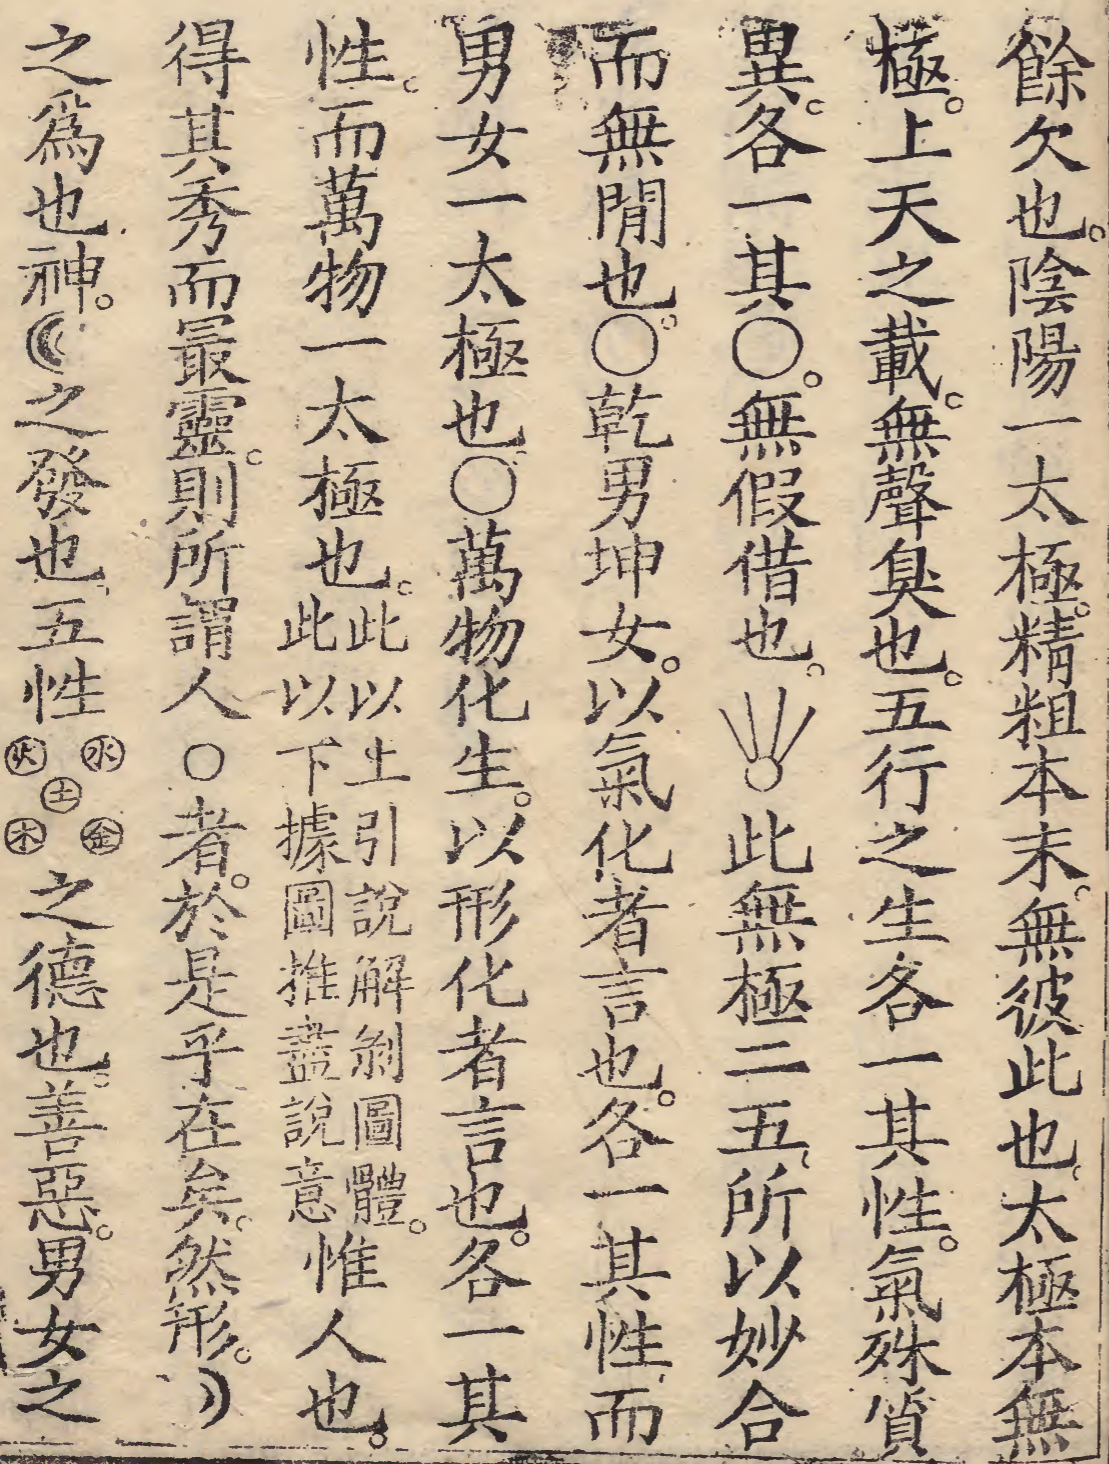 餘欠也。陰陽一太極。精粗本末。無彼此也。太極本無
極。上天之載。無聲臭也。五行之生各一其性。氣殊質
異。各一其○。無假借也。此無極二五、所以妙合
而無閒也。○乾男坤女。以氣化者言也。各一其性、而
男女一太極也。○萬物化生。以形化者言也。各一其
性。而萬物一太極也。此以上引說解剝圖體。此以下據圖推盡說意惟人也。
得其秀而最靈。則所謂人○者。於是乎在矣。然形。
之爲也神。之發也、五性水火土金木之德也。善惡。男女之